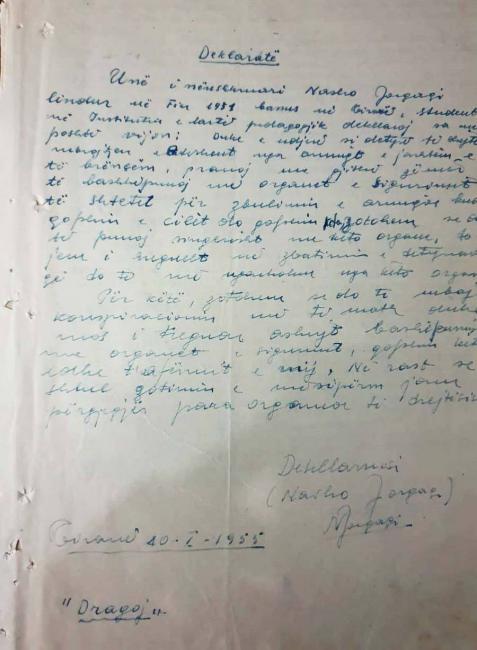 Deklaratë
Unë i nënshkruari Nasho Jorgaqi
lindur në Fier 1931 banus në Tiranë, student
në Institutin e lartë pedagogjik deklaroj sa më
poshtë vijon: Duke e ndjerë si detyrë të
mbrojtjen e Atdheut nga armiqt e jashtëm e
të brëndëm, pranoj me gjithë zëmër
të bashkëpunoj me organet e Sigurimit
të Shtetit për zbulimin e armiqve
gofshin e cilët do gofshin. Zotohem se do
të punoj sinqerisht me këto organe, të
jem i rregullt në zbatimin e detyrave
që do të më ngarkohen nga këto organe
Për këtë, zotohem se do të mbaj
konspiracionin më të madh duke
mos i treguar asnjeri bashkëpunimin
me organet e sigurimit, gofshin
edhe të afërmit e mij. Në rast se
shkel zotimin e mësipërm jam
përgjegjës para organeve të drejtësisë
Deklaruesi
(Nasho Jorgaqi)
NJorgaqi
Tiranë 10-I-1955
"Dragoj"